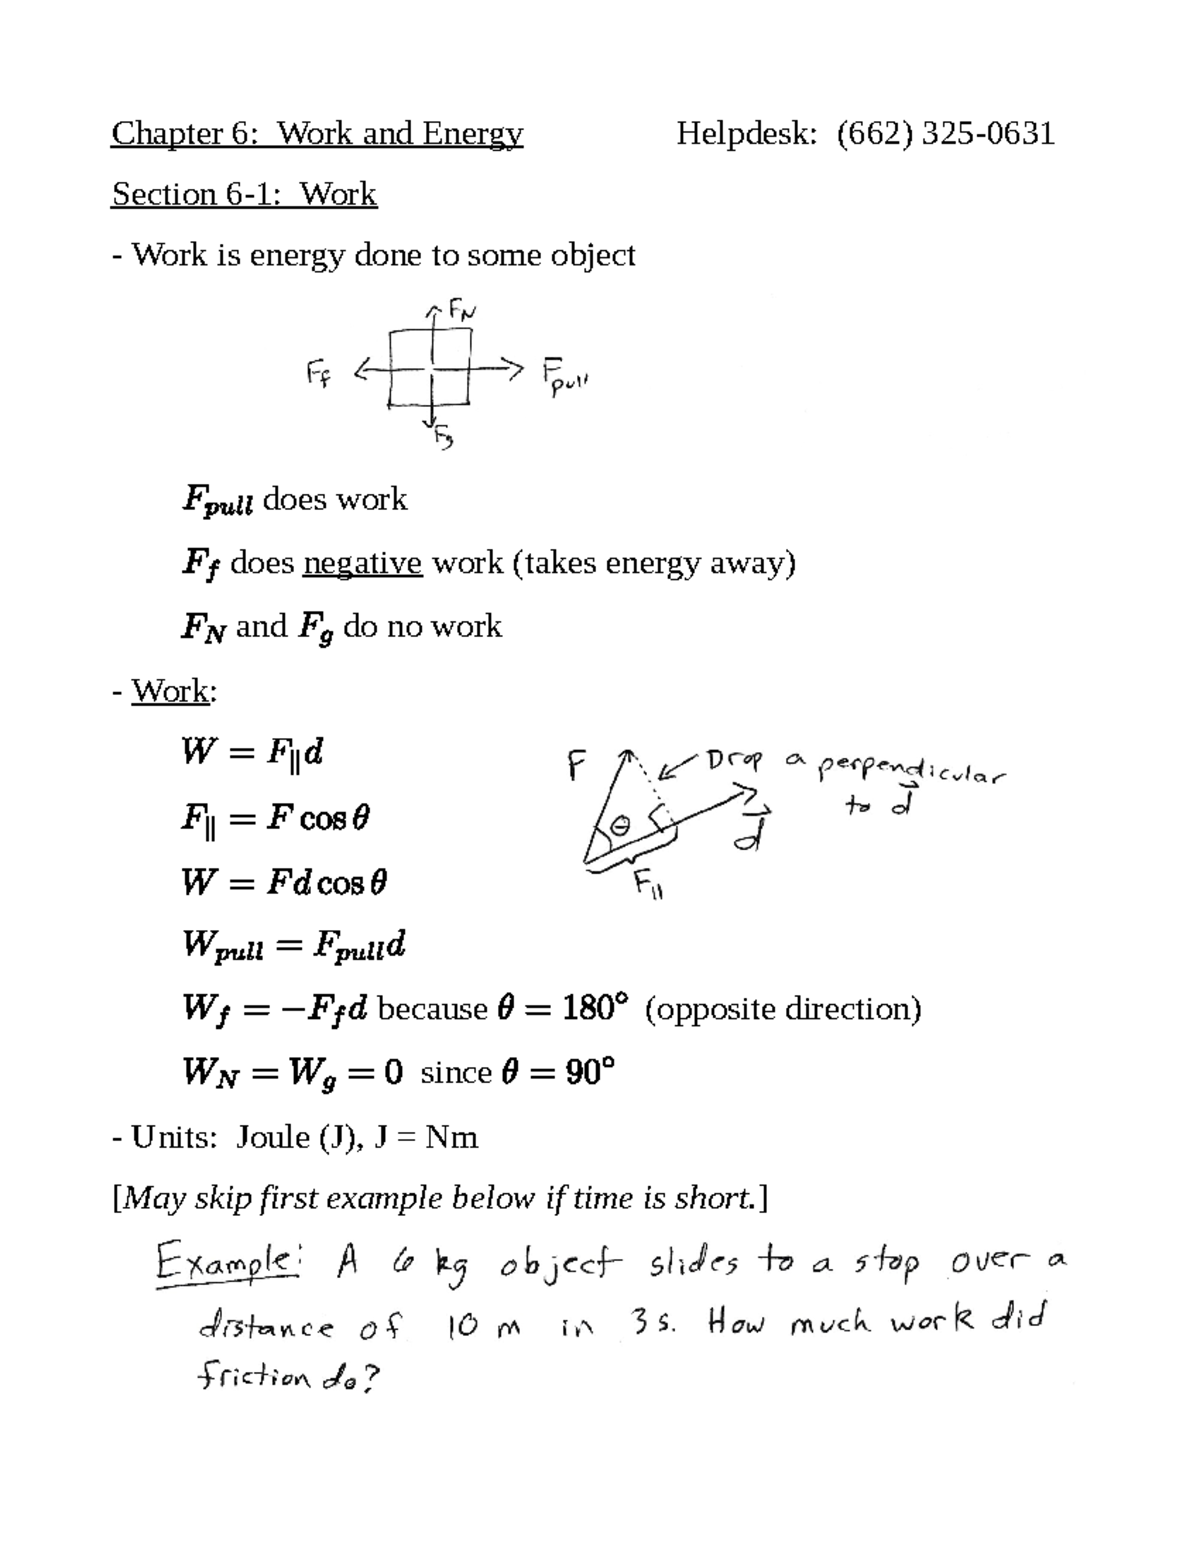 Chapter 6: Work and Energy Helpdesk: (662) 325-0631
Section 6-1: Work
- Work is energy done to some object
F_N
F_f F_pull
F_g
F_pull does work
F_f does negative work (takes energy away)
F_N and F_g do no work
- Work:
W = F_∥d
F_∥ = F cos θ
W = Fd cos θ
F Drop a perpendicular
to d⃗
θ d⃗
F_∥
W_pull = F_pull d
W_f = −F_f d because θ = 180° (opposite direction)
W_N = W_g = 0 since θ = 90°
- Units: Joule (J), J = Nm
[May skip first example below if time is short.]
Example: A 6 kg object slides to a stop over a
distance of 10 m in 3 s. How much work did
friction do?